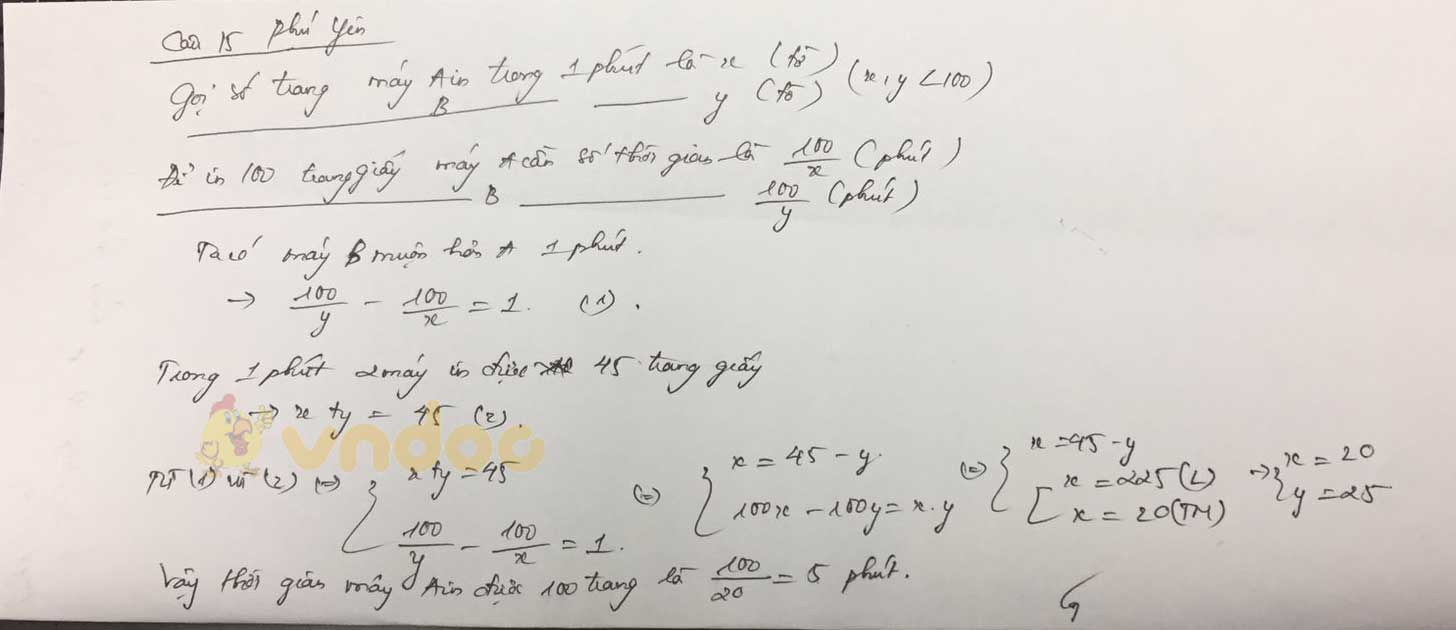 Câu 15 Phú Yên
Gọi số trang máy A in trong 1 phút là x (tờ) (x, y < 100)
B y (tờ)
Để in 100 trang giấy máy A cần số thời gian là 100/x (phút)
B 100/y (phút)
Ta có máy B muộn hơn A 1 phút.
→ 100/y - 100/x = 1. (1).
Trong 1 phút 2 máy in được 45 trang giấy
→ x + y = 45 (2).
vndoc
Từ (1) và (2) (=) { x + y = 45 (=) { x = 45 - y. (=) { x = 45 - y → { x = 20
100/y - 100/x = 1. 100x - 100y = x.y [ x = 225 (L) y = 25
x = 20 (TM)
Vậy thời gian máy A in được 100 trang là 100/20 = 5 phút.